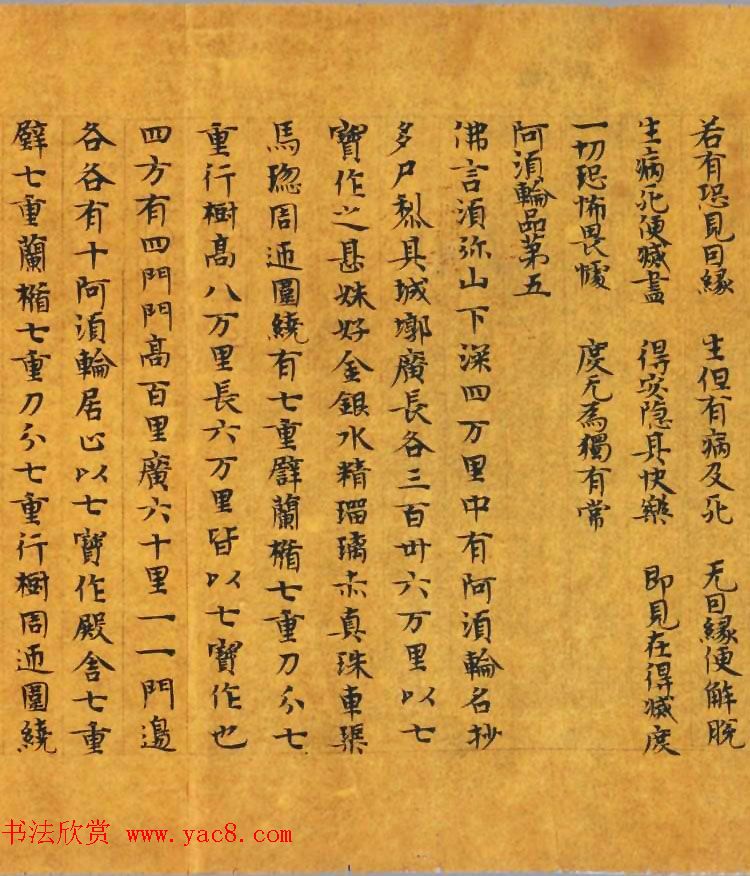 若有恐見因縁 生但有病及死 无因縁便解脫
生病死便滅盡 得安隐其快樂 即見在得滅度
一切恐怖畏懅 度无為獨有常
阿須輪品第五
佛言須弥山下深四万里中有阿須輪名抄
多尸其城墎廣長各三百卅六万里以七
寶作之甚姝好金銀水精瑠璃赤真珠車璖
馬瑙周迊圍繞有七重壁蘭楯七重刀分七
重行樹高八万里長六万里皆以七寶作也
四方有四門門高百里廣六十里一一門邊
各各有十阿須輪居止以七寶作殿舍七重
壁七重蘭楯七重刀分七重行樹周迊圍繞
书法欣赏 www.yac8.com